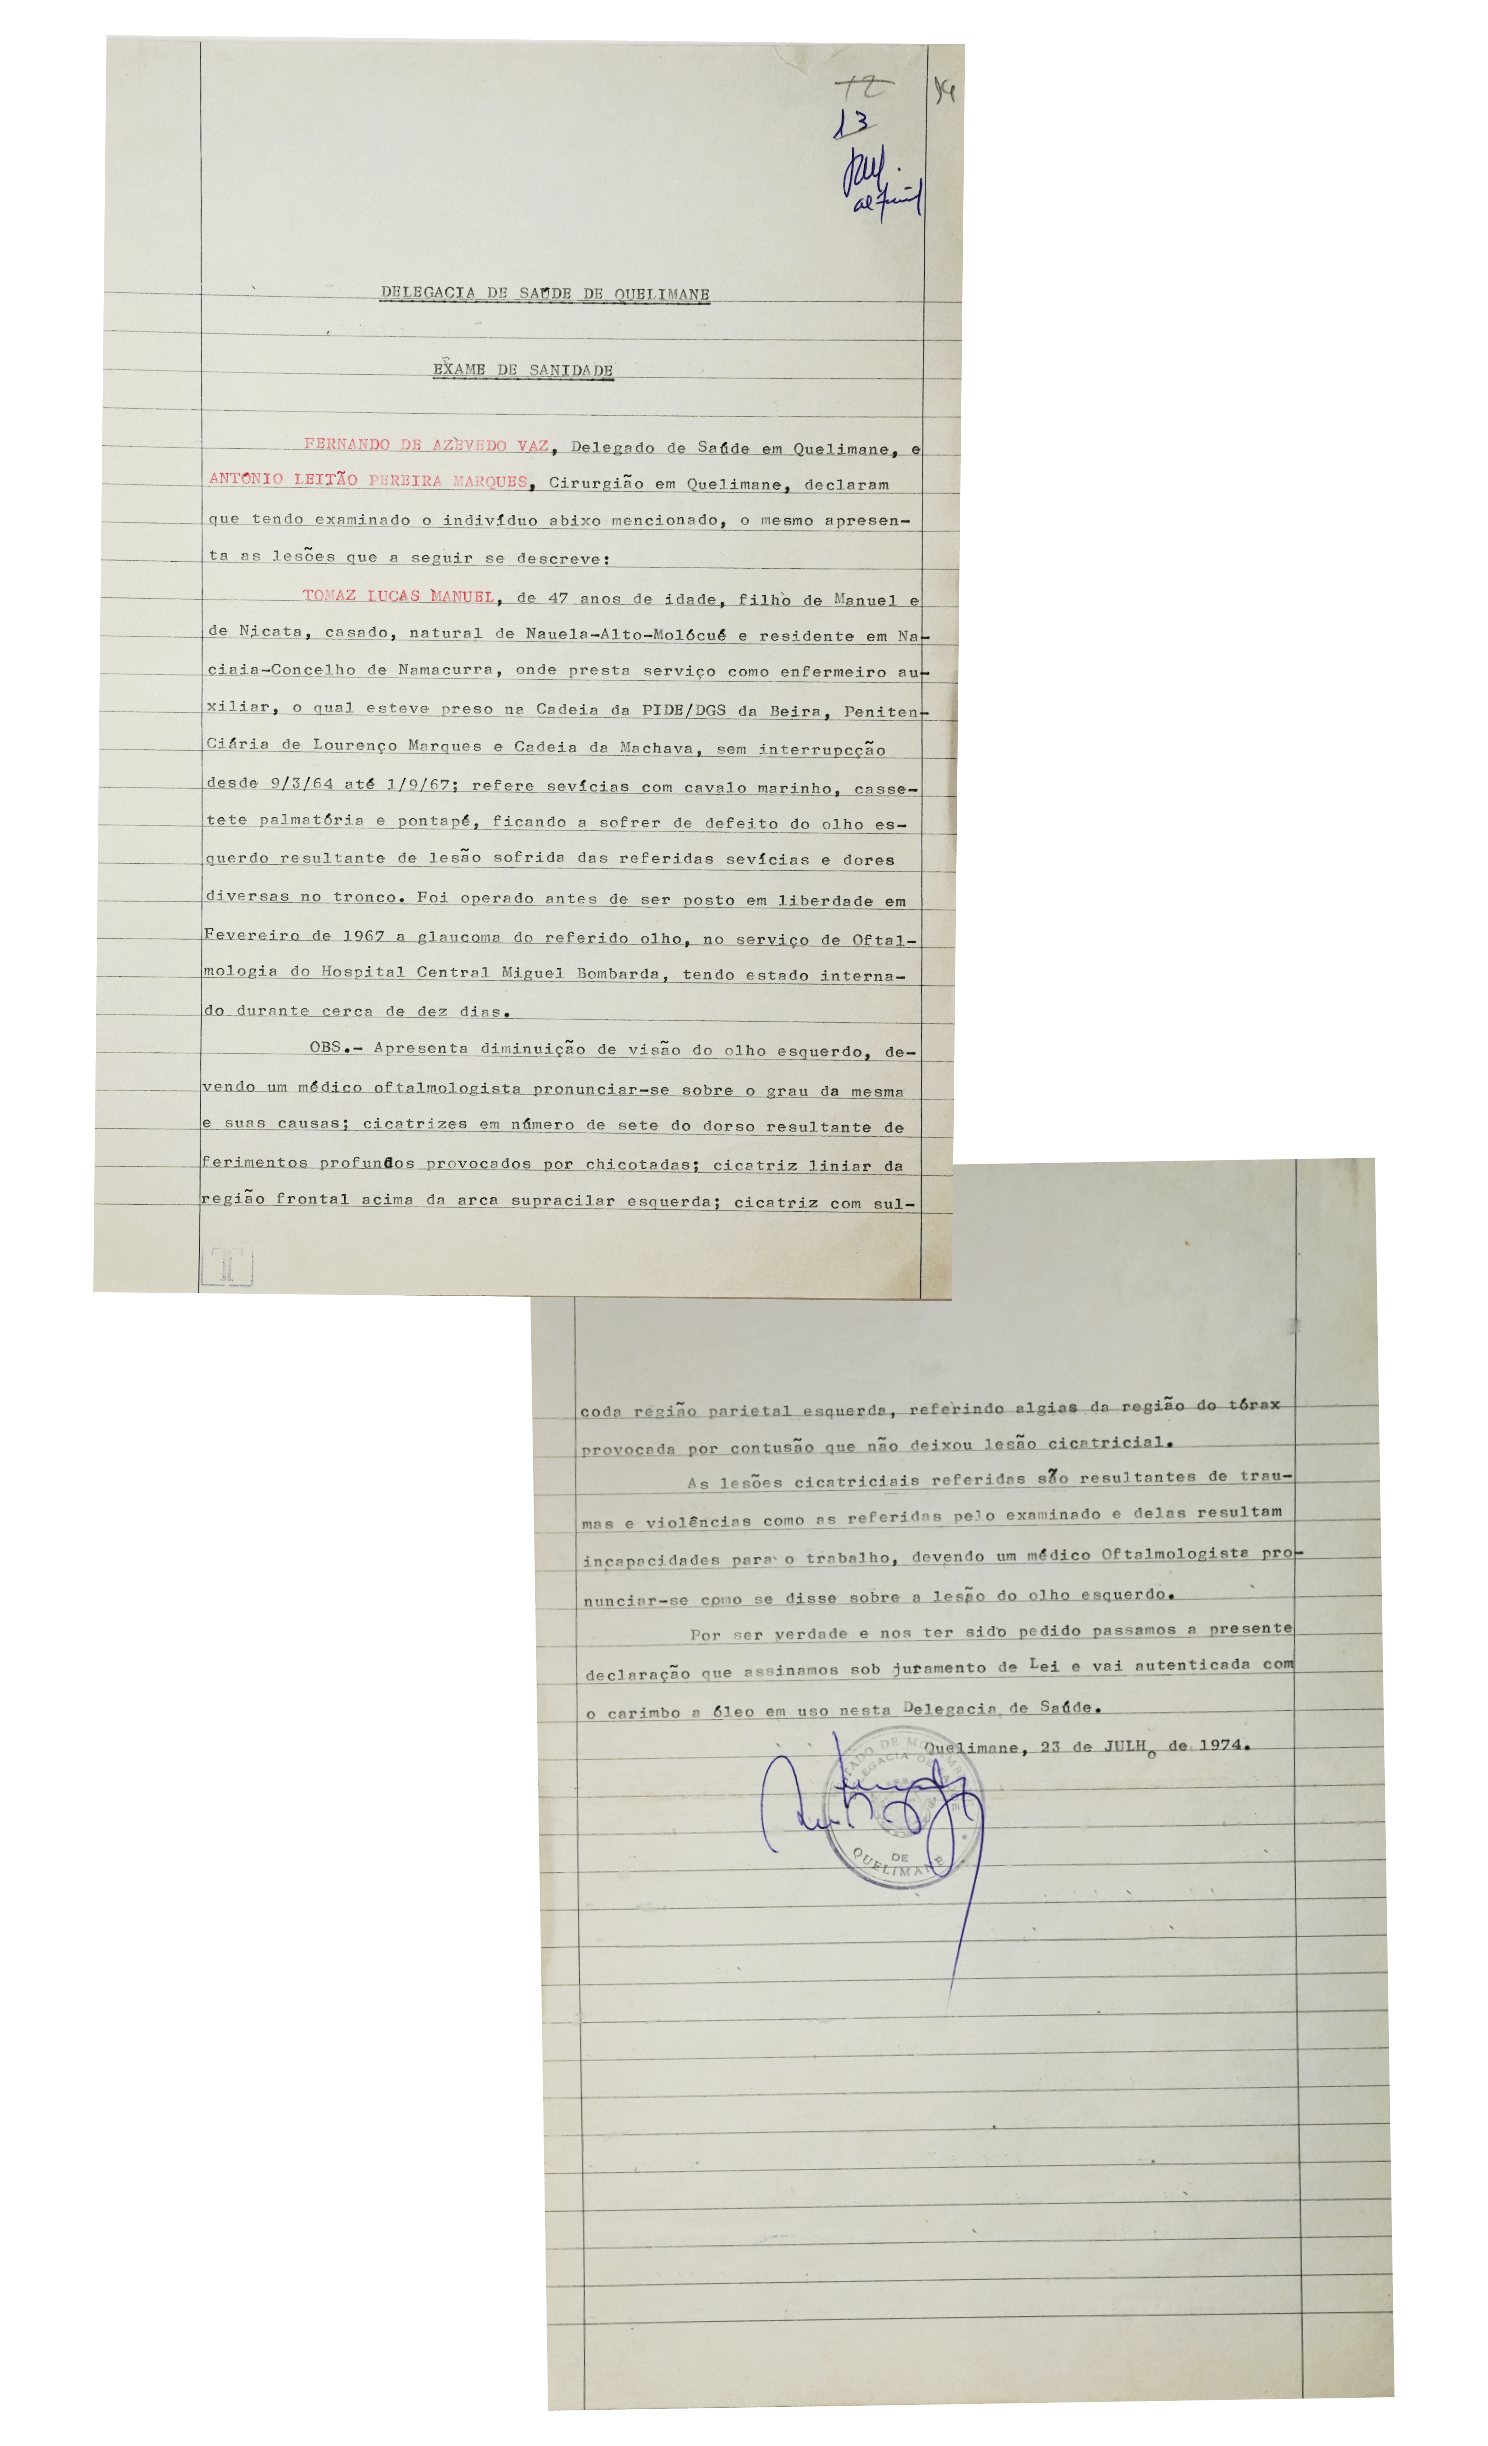 12
13
DELEGACIA DE SAÚDE DE QUELIMANE
EXAME DE SANIDADE
FERNANDO DE AZEVEDO VAZ, Delegado de Saúde em Quelimane, e
ANTÓNIO LEITÃO PEREIRA MARQUES, Cirurgião em Quelimane, declaram
que tendo examinado o indivíduo abixo mencionado, o mesmo apresen-
ta as lesões que a seguir se descreve:
TOMAZ LUCAS MANUEL, de 47 anos de idade, filho de Manuel e
de Nicata, casado, natural de Nauela-Alto-Molócué e residente em Na-
ciaia-Concelho de Namacurra, onde presta serviço como enfermeiro au-
xiliar, o qual esteve preso na Cadeia da PIDE/DGS da Beira, Peniten-
Ciária de Lourenço Marques e Cadeia da Machava, sem interrupcção
desde 9/3/64 até 1/9/67; refere sevícias com cavalo marinho, casse-
tete palmatória e pontapé, ficando a sofrer de defeito do olho es-
querdo resultante de lesão sofrida das referidas sevícias e dores
diversas no tronco. Foi operado antes de ser posto em liberdade em
Fevereiro de 1967 a glaucoma do referido olho, no serviço de Oftal-
mologia do Hospital Central Miguel Bombarda, tendo estado interna-
do durante cerca de dez dias.
OBS.- Apresenta diminuição de visão do olho esquerdo, de-
vendo um médico oftalmologista pronunciar-se sobre o grau da mesma
e suas causas; cicatrizes em número de sete do dorso resultante de
ferimentos profundos provocados por chicotadas; cicatriz liniar da
região frontal acima da arca supracilar esquerda; cicatriz com sul-
T
coda região parietal esquerda, referindo algias da região do tórax
provocada por contusão que não deixou lesão cicatricial.
As lesões cicatriciais referidas são resultantes de trau-
mas e violências como as referidas pelo examinado e delas resultam
incapacidades para o trabalho, devendo um médico Oftalmologista pro-
nunciar-se como se disse sobre a lesão do olho esquerdo.
Por ser verdade e nos ter sido pedido passamos a presente
declaração que assinamos sob juramento de Lei e vai autenticada com
o carimbo a óleo em uso nesta Delegacia de Saúde.
Quelimane, 23 de JULHo de 1974.
DE
QUELIMANE